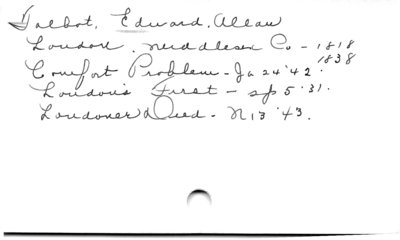 Talbot, Edward Allan
London, Middlesex Co - 1818
1838
Comfort Problem - Ja 24 '42.
London's First - sp 5 '31.
Londoner Died - N 13 '43.